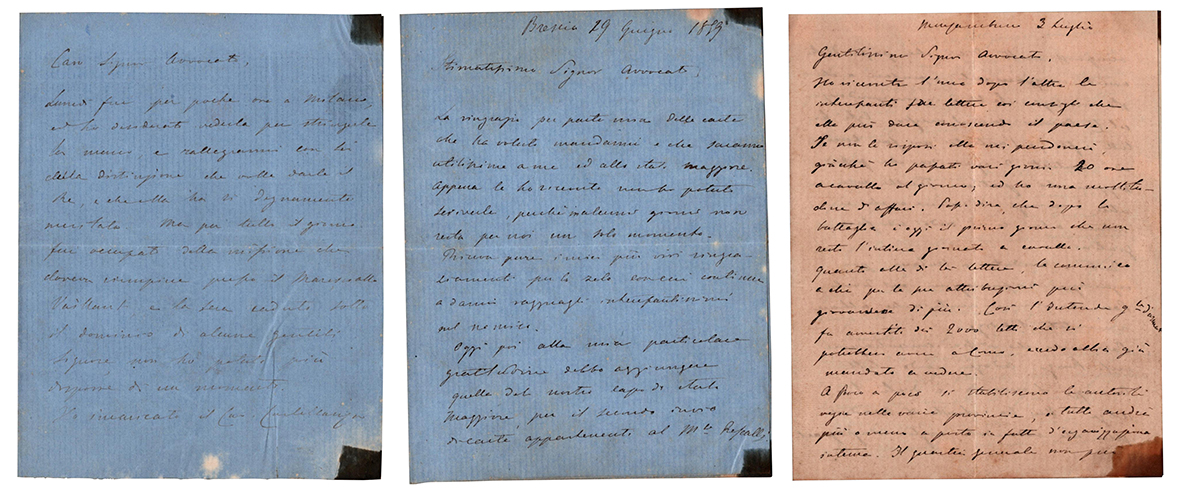 Caro Signor Avvocato,
Lunedì fui per poche ore a Milano,
ed ho desiderato vederla per stringerle
la mano e rallegrarmi con lei
della distinzione che volle darle il
Re, e che ella ha sì degnamente
meritata. Ma per tutto il giorno
fui occupato della missione che
doveva compiere presso il Maresciallo
Vaillant e la sera caduto sotto
il dominio di alcune gentili
signore non ho potuto più
disporre di un momento.
Ho incaricato il Cav.
Brescia 29 Giugno 1859
Stimatissimo Signor Avvocato,
La ringrazio per parte mia delle carte
che ha voluto mandarmi e che saranno
utilissime a me ed allo stato maggiore.
Appena le ho ricevute non ho potuto
scriverle, perché in alcuni giorni non
resta per noi un solo momento.
Riceva pure i miei più vivi ringra-
ziamenti per lo zelo con cui continua
a darmi ragguagli interessantissimi
sul nemico.
Oggi poi alla mia particolare
gratitudine debbo aggiungere
quella del nostro capo di stato
Maggiore per il secondo invio
di carte appartenenti al
3 Luglio
Gentilissimo Signor Avvocato,
Ho ricevuto l'una dopo l'altra le
interessanti sue lettere coi consigli che
ella può dare conoscendo il paese.
Se non le risposi ella mi perdonerà
giacché ho passati vari giorni 20 ore
a cavallo al giorno, ed ho una moltitu-
dine di affari. Le dirò, che dopo la
battaglia è oggi il primo giorno che non
resto l'intiera giornata a cavallo.
Quanto ella dì le lettere, le comunico
a chi per le sue attribuzioni può
giovarsene di più. Così l'Intende G.le d'armata
fu avvertito dei 2000 letti che si
potrebbero avere a Como, credo abbia già
mandato a vedere.
A poco a poco si stabiliscono le autorità
regie nelle varie provincie, e tutto andrà
più o meno a posto in fatto d'organizzazione
interna. Il quartier generale non può